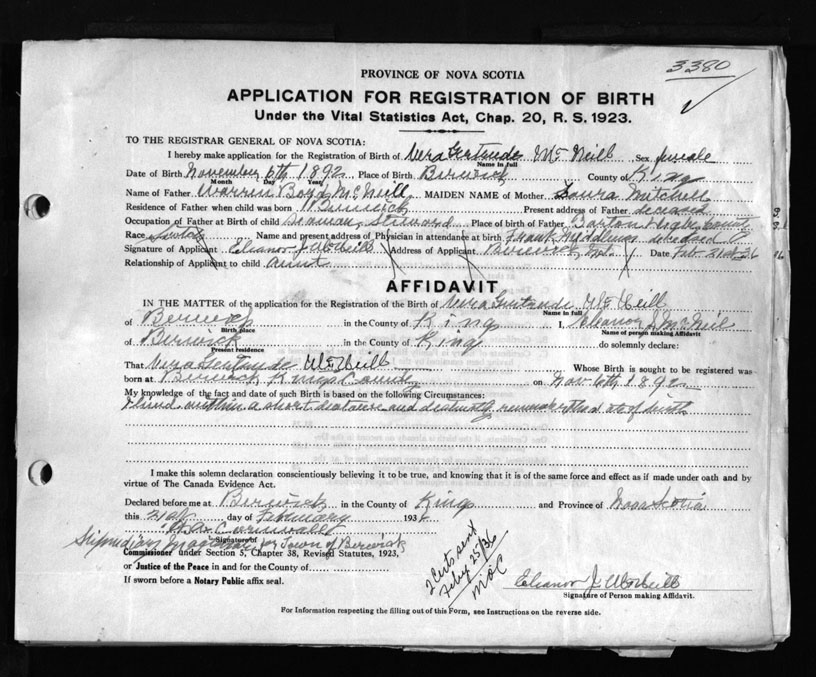 3380
PROVINCE OF NOVA SCOTIA
APPLICATION FOR REGISTRATION OF BIRTH
Under the Vital Statistics Act, Chap. 20, R. S. 1923.
TO THE REGISTRAR GENERAL OF NOVA SCOTIA:
I hereby make application for the Registration of Birth of Vera Gertrude McNeill Sex female
Name in full
Date of Birth November 6th 1892 Place of Birth Berwick County of King
Month Day Year
Name of Father Warren Boyd McNeill MAIDEN NAME of Mother Laura Mitchell
Residence of Father when child was born Berwick Present address of Father
Occupation of Father at Birth of child Place of Birth of Father
Race Scotch Name and present address of Physician in attendance at birth Frank
Signature of Applicant Eleanor J. McNeill Address of Applicant Berwick, N.S. Date Feb. 21st 36
Relationship of Applicant to child aunt
AFFIDAVIT
IN THE MATTER of the application for the Registration of the Birth of Vera Gertrude McNeill
Name in full
of Berwick in the County of King I, Eleanor J. McNeill
Birth place Name of person making Affidavit
of Berwick in the County of King do solemnly declare:
Present residence
That Vera Gertrude McNeill Whose Birth is sought to be registered was
born at Berwick Kings County on Nov 6th 1892
My knowledge of the fact and date of such Birth is based on the following Circumstances:
I lived within a short distance and distinctly remember the date of birth
I make this solemn declaration conscientiously believing it to be true, and knowing that it is of the same force and effect as if made under oath and by
virtue of The Canada Evidence Act.
Declared before me at Berwick in the County of King and Province of Nova Scotia
this 21st day of February 1936
Cornwall
Signature of
Stipendiary Magistrate for Town of Berwick
Commissioner under Section 5, Chapter 38, Revised Statutes, 1923,
or Justice of the Peace in and for the County of
If sworn before a Notary Public affix seal.
2 Certs sent
Feby 25/36
MOC
Eleanor J. McNeill
Signature of Person making Affidavit.
For Information respecting the filling out of this Form, see Instructions on the reverse side.